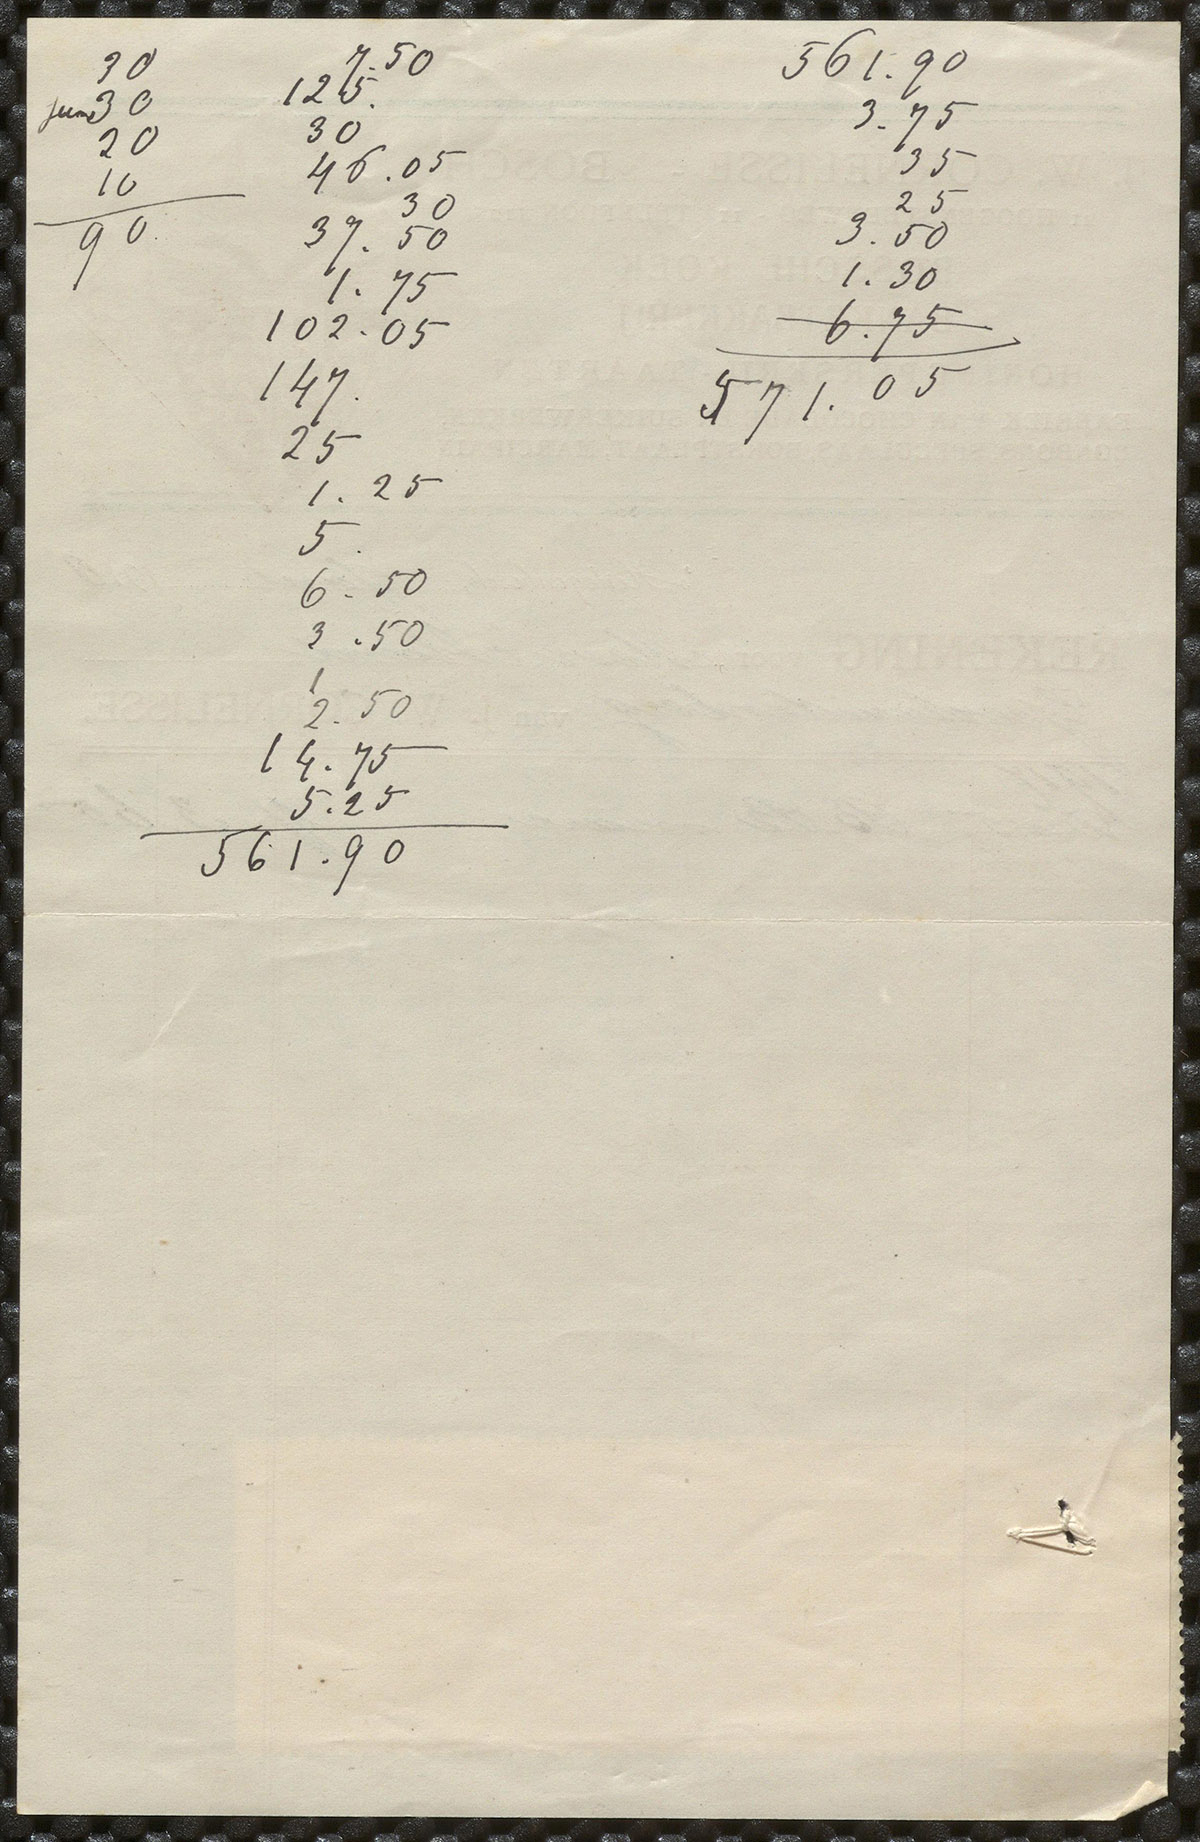 30
Juni 30
20
10
90.
7.50
125.
30
46.05
30
37.50
1.75
102.05
147.
25
1.25
5.
6.50
3.50
1
2.50
14.75
5.25
561.90
561.90
3.75
35
25
3.50
1.30
6.75
571.05
REKENING